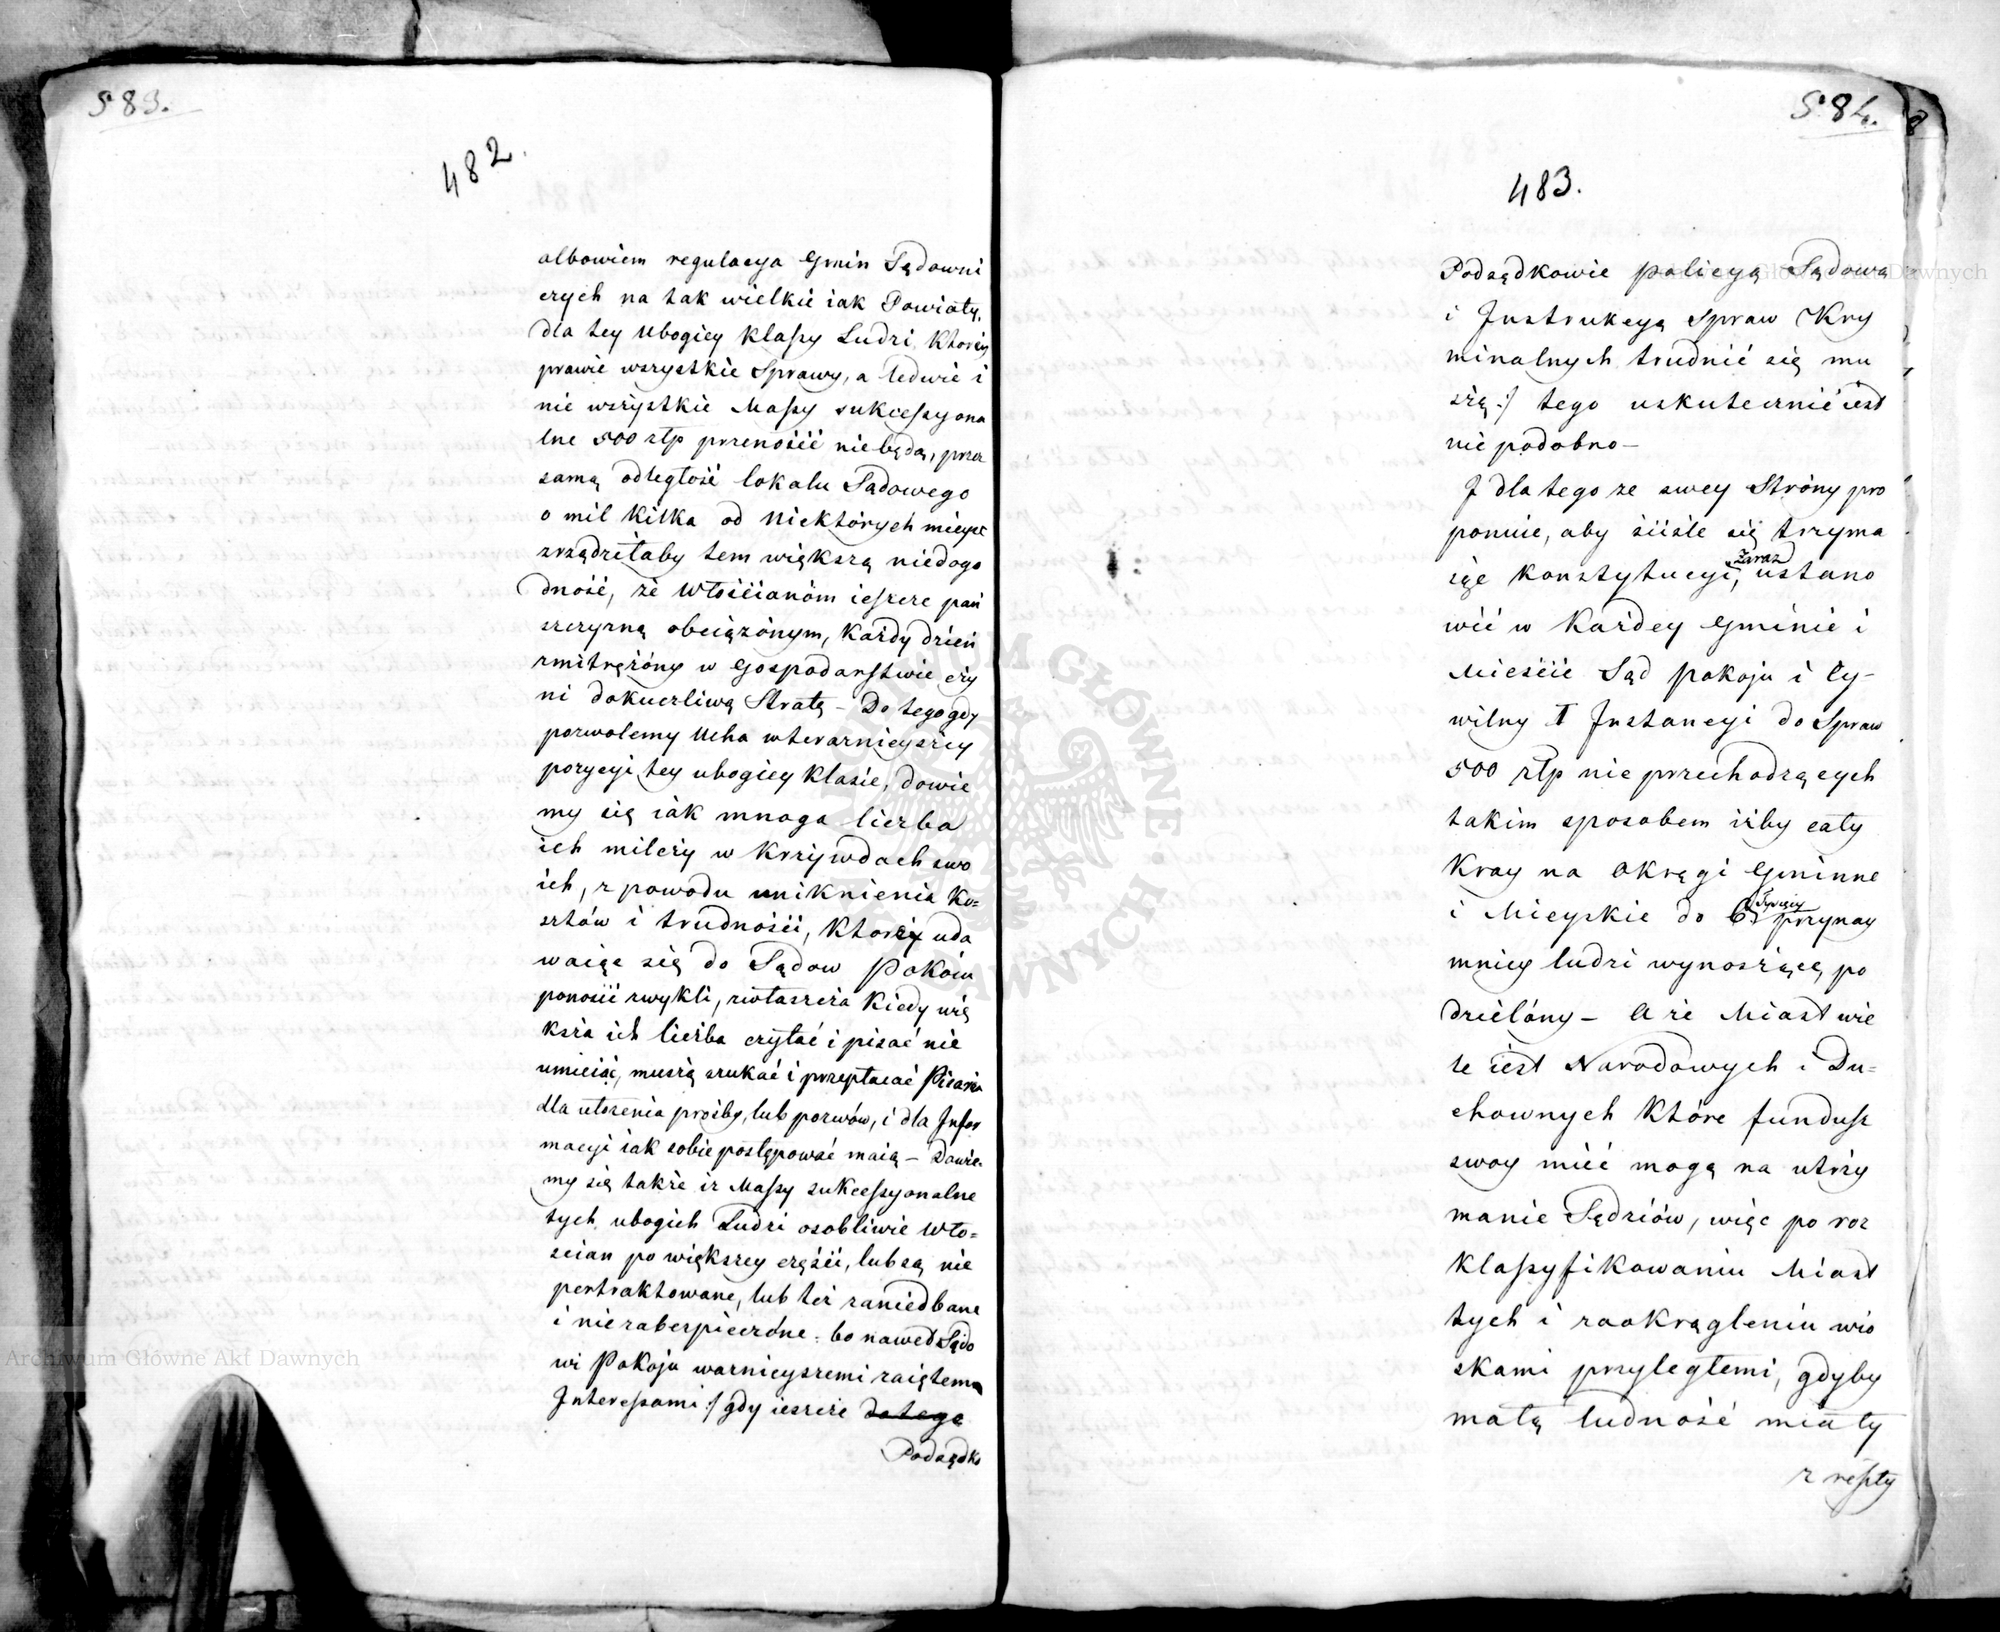 583.
482.
albowiem regulacya Gmin Sądowni
czych na tak wielkie iak Powiaty,
dla tey Ubogiey Klaſsy Ludzi, Ktorzy
prawie wszystkie Sprawy, a ledwie i
nie wszystkie Maſsy sukceſsyona
lne 500 złp przenośić niebędą, przez
samą odległość lokalu Sądowego
o mil kilka od Niektórych mieysc
zrządziłaby tem większą niedogo
dność, że Włośćianóm ieſzcze pań
szczyzną obciążónym, Każdy dzień
zmitrężóny w Gospodarſtwie czy
ni dokuczliwą Stratę – Do tego gdy
pozwolemy Ucha wtevarnieyszey
pozycyi tey ubogiey Klasie, dowie
my się iak mnoga liczba
ich milczy w Krzywdach swo
ich, z powodu uniknienia Ko=
sztów i trudnośći, Ktorzy uda
waiąc się do Sądow Pokóiu
ponośić zwykli, zwłaszcza Kiedy wię
ksza ich liczba czytać i pisać nie
umieiąc, muszą szukać i przepłacać Pisarza
dla ułozenia proźby, lub pozwów, i dla Infor
macyi iak sobie postępować maią – Dowie.
my się także iż Maſsy sukceſsyonalne
tych ubogich Ludzi osobliwie Wło=
scian po większey częśći, lub są nie
pertraktowane, lub też zaniedbane
i niezabezpieczóne. bo nawet Sądo
wi Pokoju ważnieyszemi zaiętemu
Intereſsami :/ gdy ieszcze dotego
Podsędko
584.
483.
Podsędkowie policyą Sądową
i Instrukcyą Spraw Kry
minalnych trudnić się mu
szą :/ tego uskutecznić iest
nie podobno –
I dla tego ze swey Stróny pro
ponuie, aby śćiśle się trzyma
iąc Konstytucyi, Zaraz ustano
wić w Każdey Gminie i
Mieśćie Sąd pokoju i Cy-
wilny I Instancyi do Spraw
500 złp nie przechodzących
takim sposobem iżby cały
Kray na Okręgi Gminne
i Mieyskie do 6 Tysięcy przynay
mniey ludzi wynoszące, po
dzielóny – A że Miast wie
le iest Narodowych i Du=
chownych Które fundusz
swoy mieć mogą na utrzy
manie Sędziów, więc po roz
klaſsyfikowaniu Miast
tych i zaokrągleniu wio
skami przyległemi, gdyby
małą ludność miały
z reſzty
Archiwum Główne Akt Dawnych